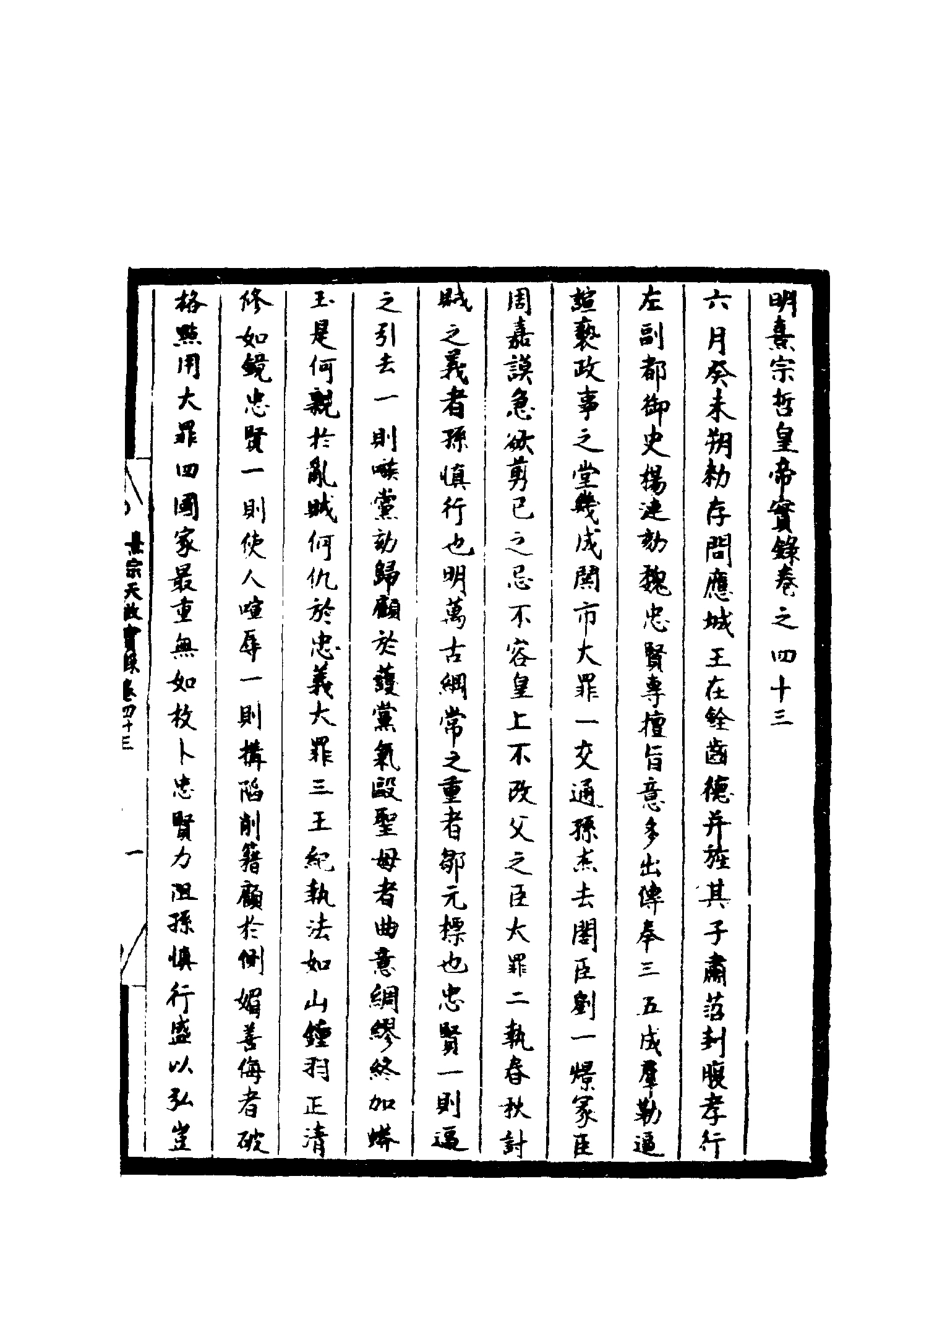 明熹宗哲皇帝實錄卷之四十三
六月癸未朔勑存問應城王在銓齒德并旌其子肅𦶜封殿孝行
左副都御史楊漣劾魏忠賢專擅旨意多出傳奉三五成羣勒逼
諠褻政事之堂幾成鬧市大罪一交通孫杰去閣臣劉一燝冢臣
周嘉謨急欲剪己之忌不容皇上不改父之臣大罪二執春秋討
賊之義者孫慎行也明萬古綱常之重者鄒元標也忠賢一則逼
之引去一則嗾黨劾歸顧於護黨氣毆聖母者曲意綢繆終加蟒
玉是何親於亂賊何仇於忠義大罪三王紀執法如山鍾羽正清
修如鏡忠賢一則使人喧辱一則搆陷削籍顧於側媚善侮者破
格點用大罪四國家最重無如枚卜忠賢力沮孫慎行盛以弘豈
熹宗天啟實錄卷四十三
一